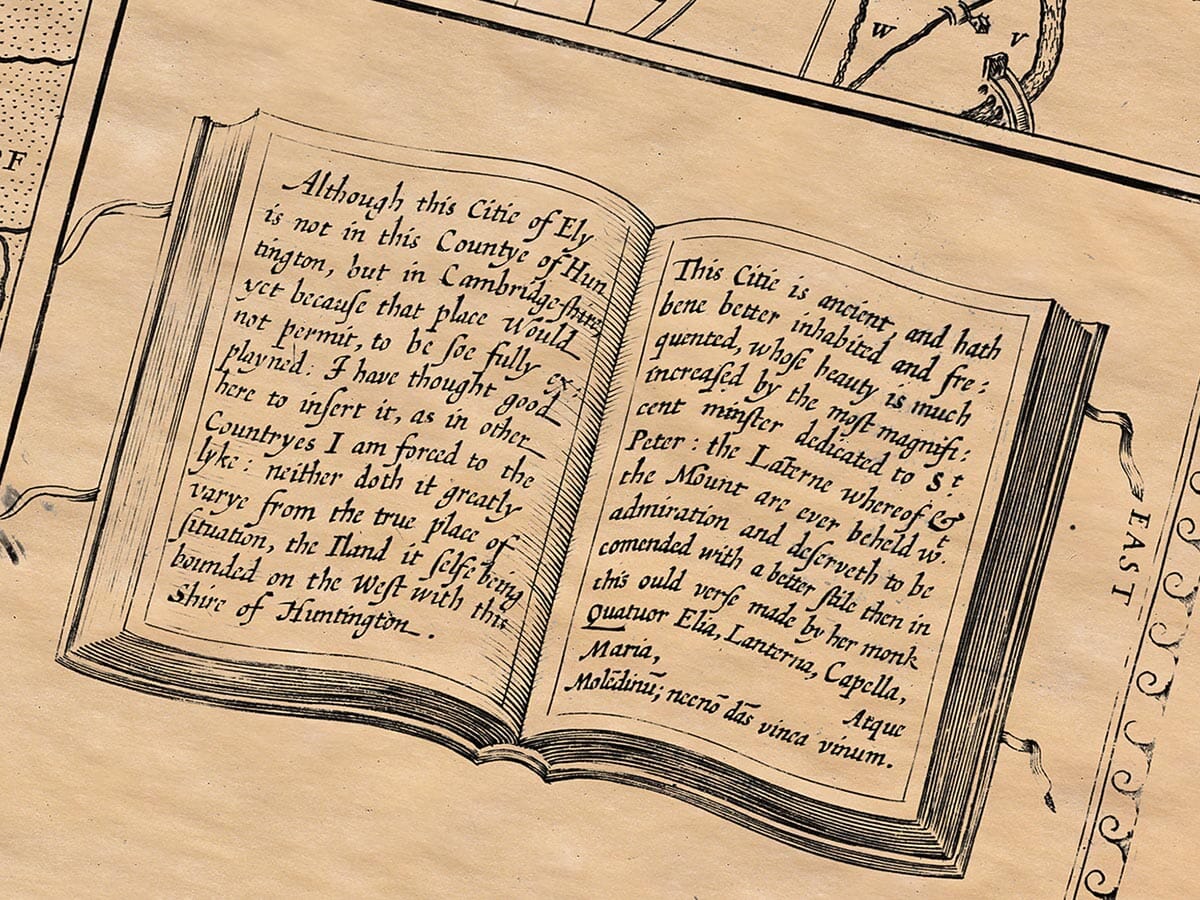 W
V
OF
Although this Citie of Ely
is not in this Countye of Hun
tington, but in Cambridge-shire
yet becauſe that place Would
not permit, to be ſoe fully ex:
playned: I have thought good
here to inſert it, as in other
Countryes I am forced to the
lyke: neither doth it greatly
varye from the true place of
ſituation, the Iland it ſelfe being
bounded on the Weſt with this
Shire of Huntington.
This Citie is ancient, and hath
bene better inhabited and fre:
quented, whoſe beauty is much
increaſed by the moſt magnifi:
cent minſter dedicated to St.
Peter: the Lāterne whereof &
the Mount are ever beheld wt.
admiration and deſerveth to be
comended with a better ſtile then in
this ould verſe made by her monk
Quatuor Elia, Lanterna, Capella,
Maria,
Atque
Molēdinū; necnō dās vinea vinum.
EAST